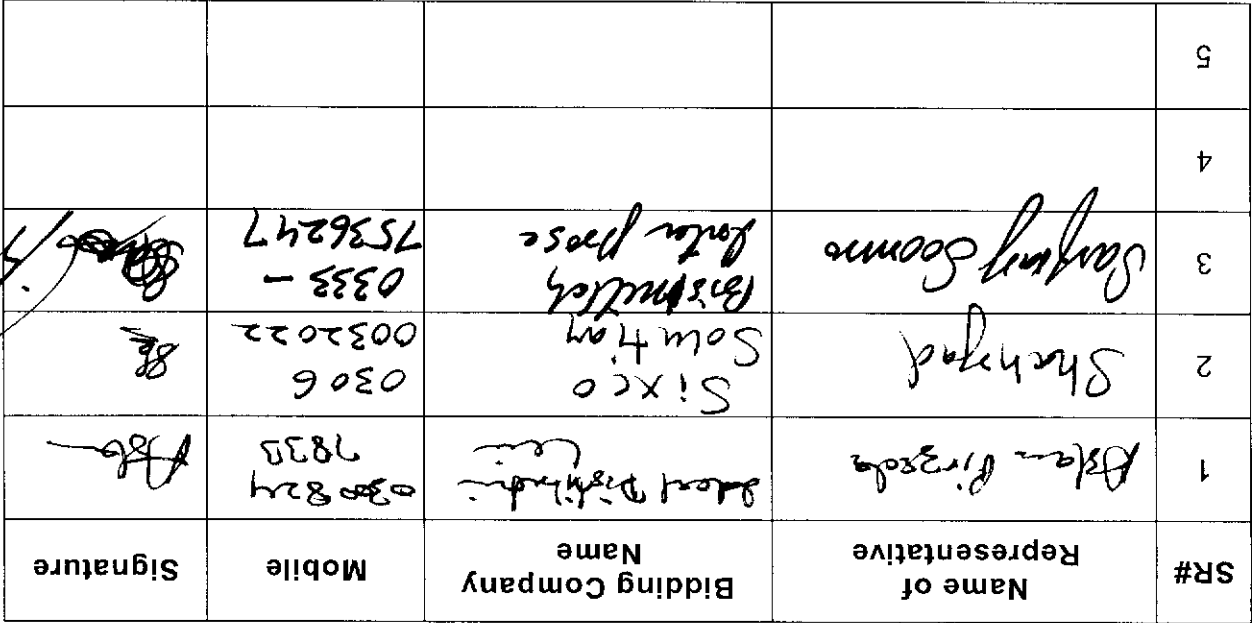 SR#
Name of
Representative
Bidding Company
Name
Mobile
Signature
1
Aslam Pirzada
Ideal
0300 824
7833
2
Shahzad
Sixco
Solution
0306
0032022
3
Soomro
Bismillah
Enter prose
0333 -
7536247
4
5